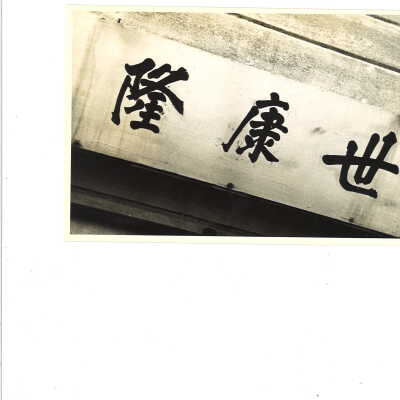 世康隆